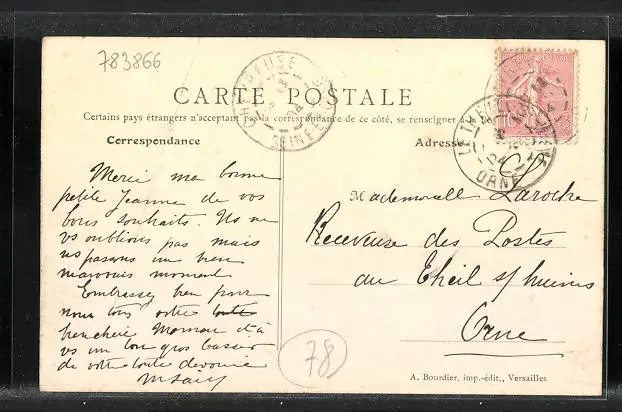 783866
CHEVREUSE
SEINE ET
CARTE POSTALE
10
Certains pays étrangers n'acceptant pas la correspondance de ce côté, se renseigner à
LE THEIL
ORNE
Correspondance
Adresse
Merci ma bonne
petite Jeanne de vos
bons souhaits. Ns ne
vs oublions pas mais
ns passons un bien
mauvais moment
Embrassez bien pour
nous tous votre toute
Maman et à
vs un bon gros baiser
de votre toute dévouée
Mademoiselle Laroche
Receveuse des Postes
au Theil s/ huisne
Orne
78
A. Bourdier, imp.-édit., Versailles